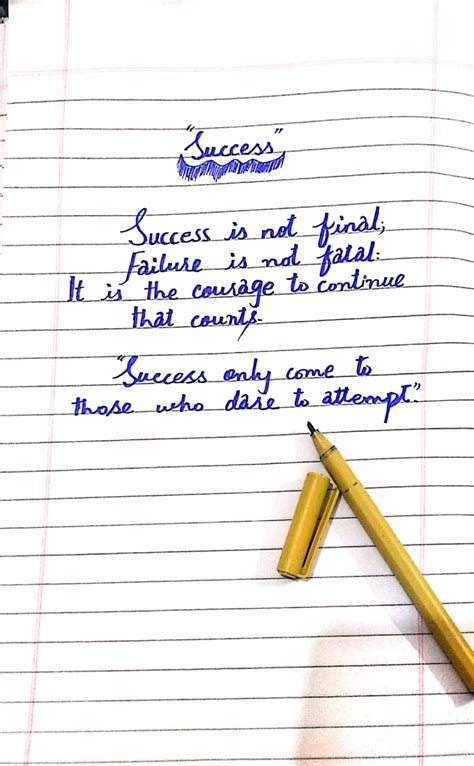 "Success"
Success is not final;
Failure is not fatal:
It is the courage to continue
that counts.
"Success only come to
those who dare to attempt."